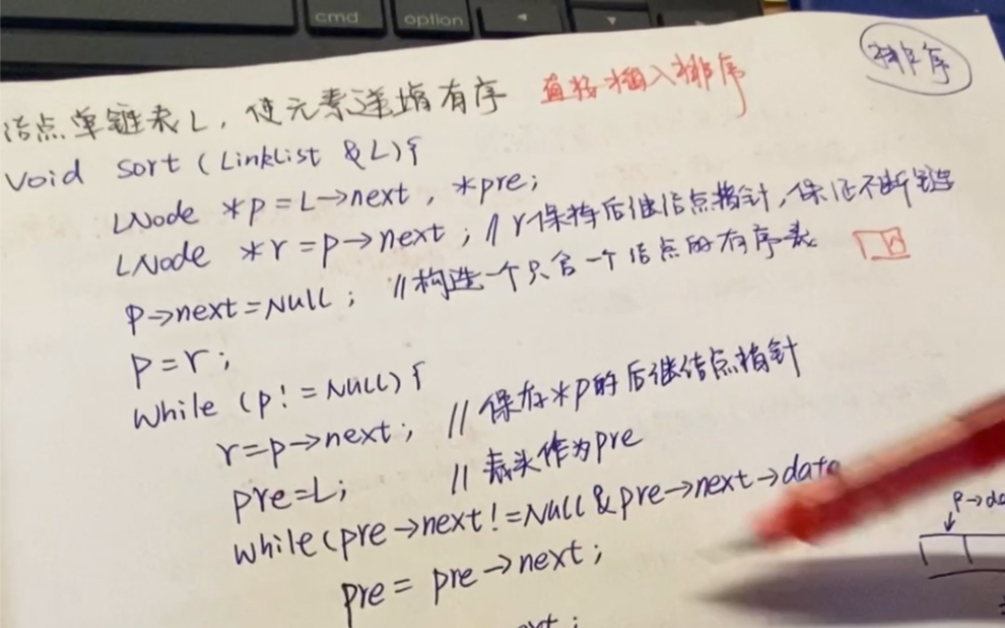 cmd option
排序
结点单链表L，使元素递增有序 直接插入排序
void sort (LinkList &L){
LNode *p=L→next, *pre;
LNode *r=p→next; //r保持后继结点指针，保证不断链
p→next=NULL; //构造一个只含一个结点的有序表
p=r;
while (p!=NULL){
r=p→next; //保存*p的后继结点指针
pre=L; //表头作为pre
while(pre→next!=NULL&pre→next→data
p→da
pre=pre→next;